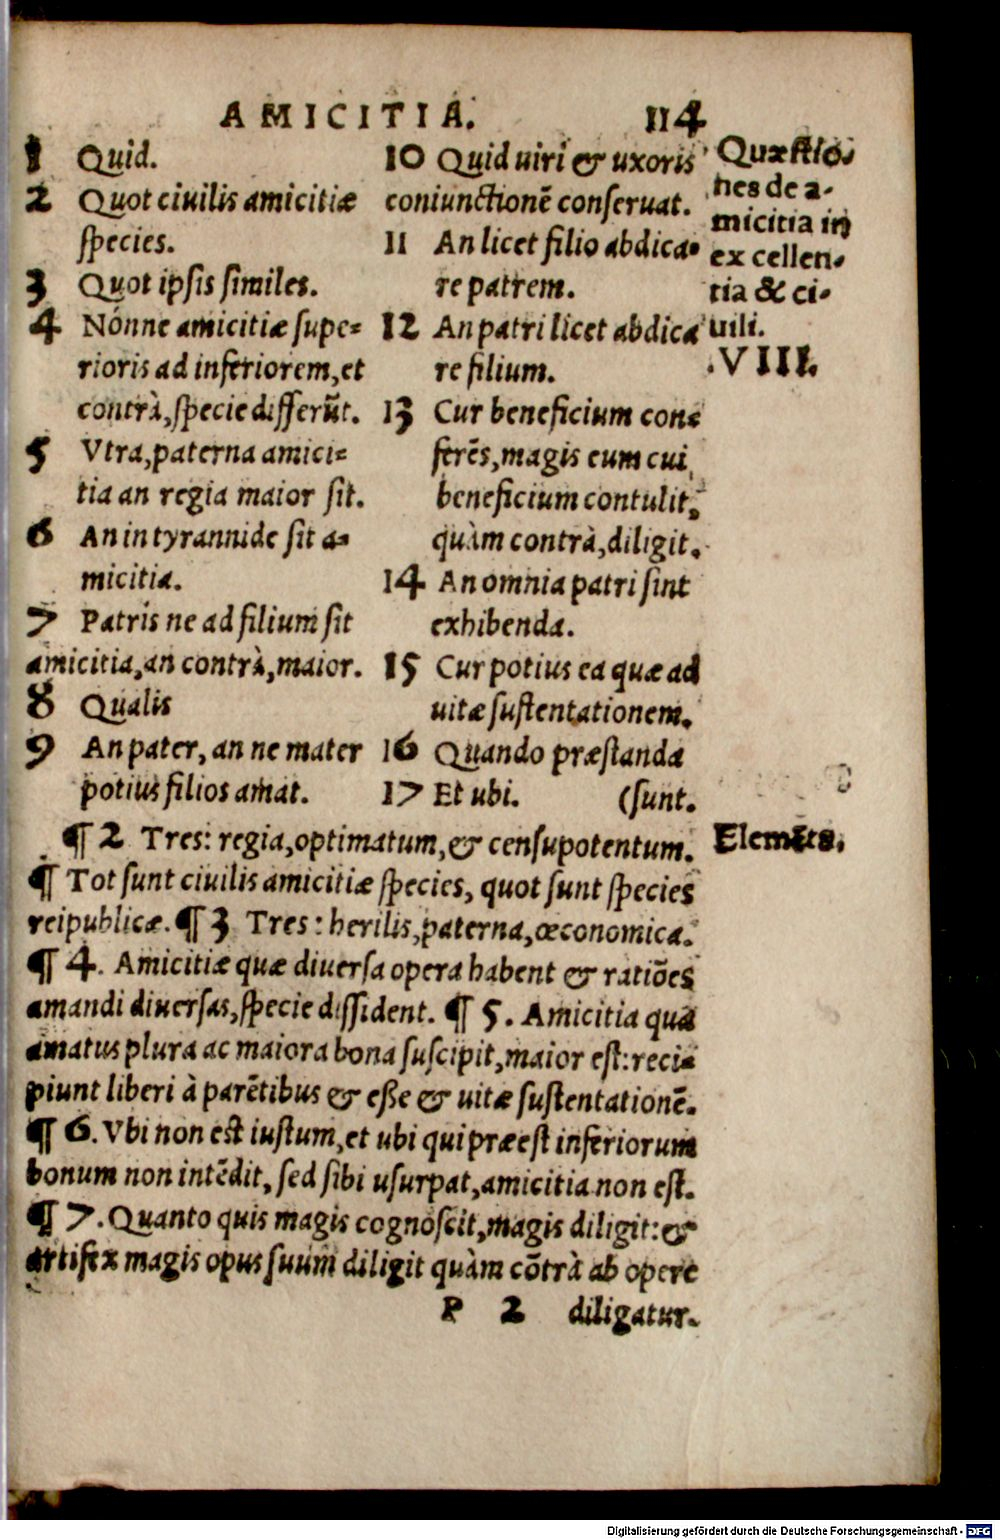 AMICITIA. 114
1 Quid.
2 Quot ciuilis amicitiæ
species.
3 Quot ipsis similes.
4 Nónne amicitiæ supe-
rioris ad inferiorem, et
contrà, specie differũt.
5 Vtra, paterna amici-
tia an regia maior sit.
6 An in tyrannide sit a-
micitia.
7 Patris ne ad filium sit
amicitia, an contrà, maior.
8 Qualis
9 An pater, an ne mater
potius filios amat.
10 Quid uiri & uxoris
coniunctionẽ conseruat.
11 An licet filio abdica-
re patrem.
12 An patri licet abdica
re filium.
13 Cur beneficium con-
ferẽs, magis eum cui
beneficium contulit,
quàm contrà, diligit.
14 An omnia patri sint
exhibenda.
15 Cur potius ea quæ ad
uitæ sustentationem.
16 Quando præstanda
17 Et ubi. (sunt.
Quæstio-
nes de a-
micitia in
excellen-
tia & ci-
uili.
.VIII.
¶ 2 Tres: regia, optimatum, & censupotentum.
¶ Tot sunt ciuilis amicitiæ species, quot sunt species
reipublicæ. ¶ 3 Tres: herilis, paterna, œconomica.
¶ 4. Amicitiæ quæ diuersa opera habent & ratiões
amandi diuersas, specie dissident. ¶ 5. Amicitia qua
amatus plura ac maiora bona suscipit, maior est: reci-
piunt liberi à parẽtibus & esse & uitæ sustentationẽ.
¶ 6. Vbi non est iustum, et ubi qui præest inferiorum
bonum non intẽdit, sed sibi usurpat, amicitia non est.
¶ 7. Quanto quis magis cognoscit, magis diligit: &
artifex magis opus suum diligit quàm cõtrà ab opere
Elemẽta.
P 2 diligatur.
Digitalisierung gefördert durch die Deutsche Forschungsgemeinschaft - DFG